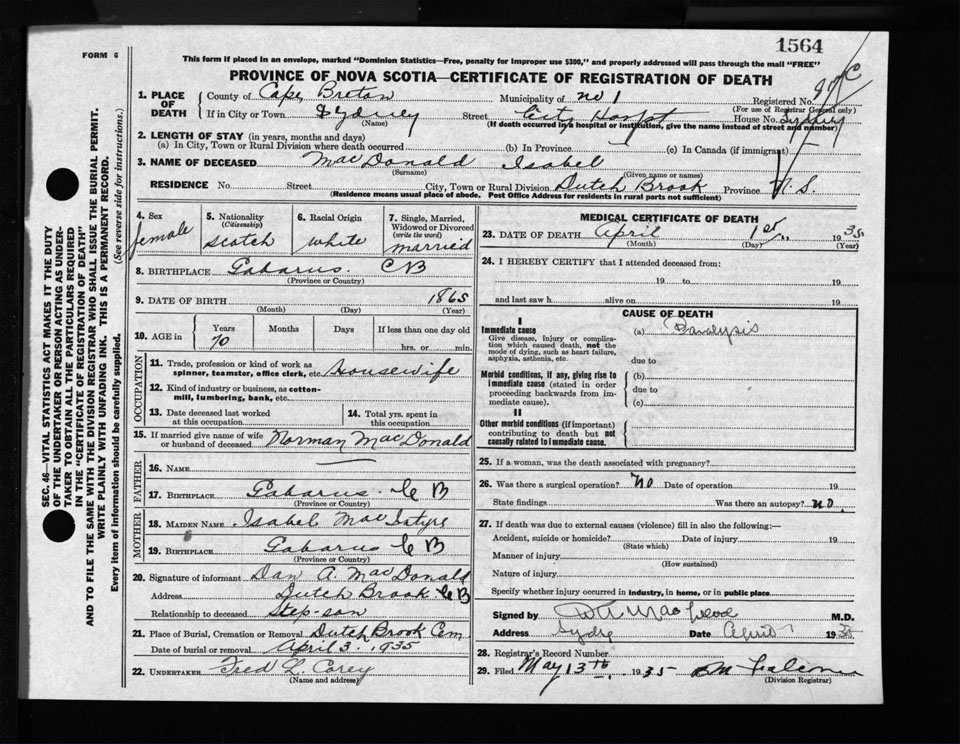 1564
FORM 6
This form if placed in an envelope, marked "Dominion Statistics—Free, penalty for improper use $300," and properly addressed will pass through the mail "FREE"
PROVINCE OF NOVA SCOTIA—CERTIFICATE OF REGISTRATION OF DEATH
SEC. 46—VITAL STATISTICS ACT MAKES IT THE DUTY
OF THE UNDERTAKER OR PERSON ACTING AS UNDER-
TAKER TO OBTAIN ALL THE PARTICULARS REQUIRED
IN THE "CERTIFICATE OF REGISTRATION OF DEATH"
AND TO FILE THE SAME WITH THE DIVISION REGISTRAR WHO SHALL ISSUE THE BURIAL PERMIT.
WRITE PLAINLY WITH UNFADING INK. THIS IS A PERMANENT RECORD.
Every item of information should be carefully supplied. (See reverse side for instructions.)
1. PLACE OF DEATH
County of Cape Breton Municipality of No 1 Registered No.
(For use of Registrar General only)
If in City or Town Sydney Street City Hospt House No. Sydney
(Name) (If death occurred in a hospital or institution, give the name instead of street and number)
2. LENGTH OF STAY (in years, months and days)
(a) In City, Town or Rural Division where death occurred (b) In Province (c) In Canada (if immigrant)
3. NAME OF DECEASED MacDonald Isabel
(Surname) (Given name or names)
RESIDENCE No. Street City, Town or Rural Division Dutch Brook Province N.S.
(Residence means usual place of abode. Post Office Address for residents in rural parts not sufficient)
4. Sex female
5. Nationality (Citizenship) Scotch
6. Racial Origin white
7. Single, Married, Widowed or Divorced (write the word) married
8. BIRTHPLACE Gabarus. C B
(Province or Country)
9. DATE OF BIRTH 1865
(Month) (Day) (Year)
10. AGE in Years 70 Months Days If less than one day old hrs. or min.
OCCUPATION
11. Trade, profession or kind of work as spinner, teamster, office clerk, etc. Housewife
12. Kind of industry or business, as cotton-mill, lumbering, bank, etc.
13. Date deceased last worked at this occupation
14. Total yrs. spent in this occupation
15. If married give name of wife or husband of deceased Norman MacDonald
FATHER
16. Name
17. Birthplace Gabarus. C B
(Province or Country)
MOTHER
18. Maiden Name Isabel MacIntyre
19. Birthplace Gabarus C B
(Province or Country)
20. Signature of informant Dan A. MacDonald
Address Dutch Brook C B
Relationship to deceased Step-son
21. Place of Burial, Cremation or Removal Dutch Brook Cem
Date of burial or removal April 3. 1935
22. UNDERTAKER Fred L. Corey
(Name and address)
MEDICAL CERTIFICATE OF DEATH
23. DATE OF DEATH April 1st 1935
(Month) (Day) (Year)
24. I HEREBY CERTIFY that I attended deceased from:
19 to 19
and last saw h alive on 19
CAUSE OF DEATH
I
Immediate cause
Give disease, injury or complication which caused death, not the mode of dying, such as heart failure, asphyxia, asthenia, etc.
(a) Paralysis
due to
Morbid conditions, if any, giving rise to immediate cause (stated in order proceeding backwards from immediate cause).
(b)
due to
(c)
II
Other morbid conditions (if important) contributing to death but not causally related to immediate cause.
25. If a woman, was the death associated with pregnancy?
26. Was there a surgical operation? No Date of operation 19
State findings Was there an autopsy? no.
27. If death was due to external causes (violence) fill in also the following:—
Accident, suicide or homicide? Date of injury 19
(State which)
Manner of injury
(How sustained)
Nature of injury
Specify whether injury occurred in industry, in home, or in public place
Signed by MacLeod M.D.
Address Sydney Date April 1935
28. Registrar's Record Number
29. Filed May 13th 1935
(Division Registrar)